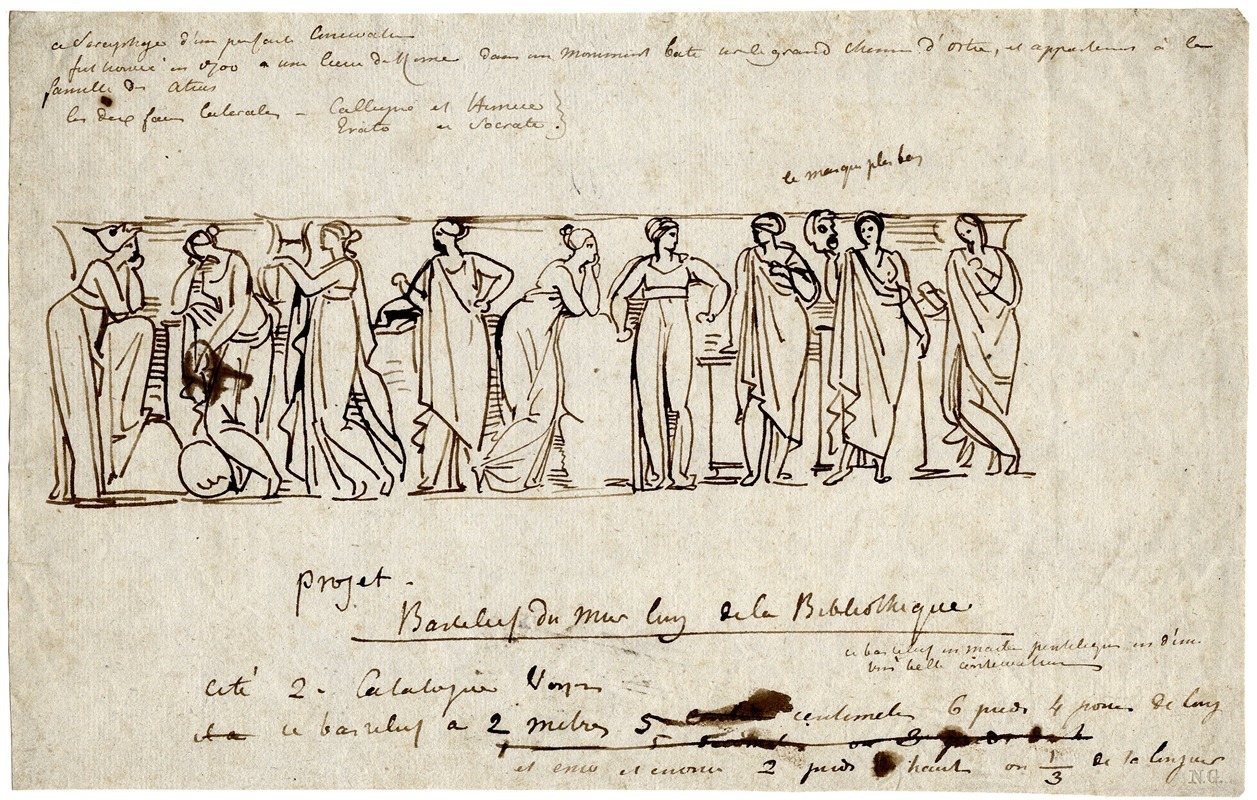 ce Sarcophage d'une parfaite Conservation
fut trouvé en 1700 a une lieue de Rome dans un monument bati sur le grand chemin d'ostie, et appartenoit à la
famille des Atius
les deux faces laterales - Calliope et Homere
Erato et Socrate
le masque plus bas
projet -
Basrelief du mur long de la Bibliothèque
ce basrelief en marbre pentelique est d'une
très belle conservation
coté 2 - Catalogue
ce basrelief a 2 metres 5 centimetres 6 pieds 4 pouces de long
et environ 2 pieds haut ou 1/3 de sa longueur
N.G.